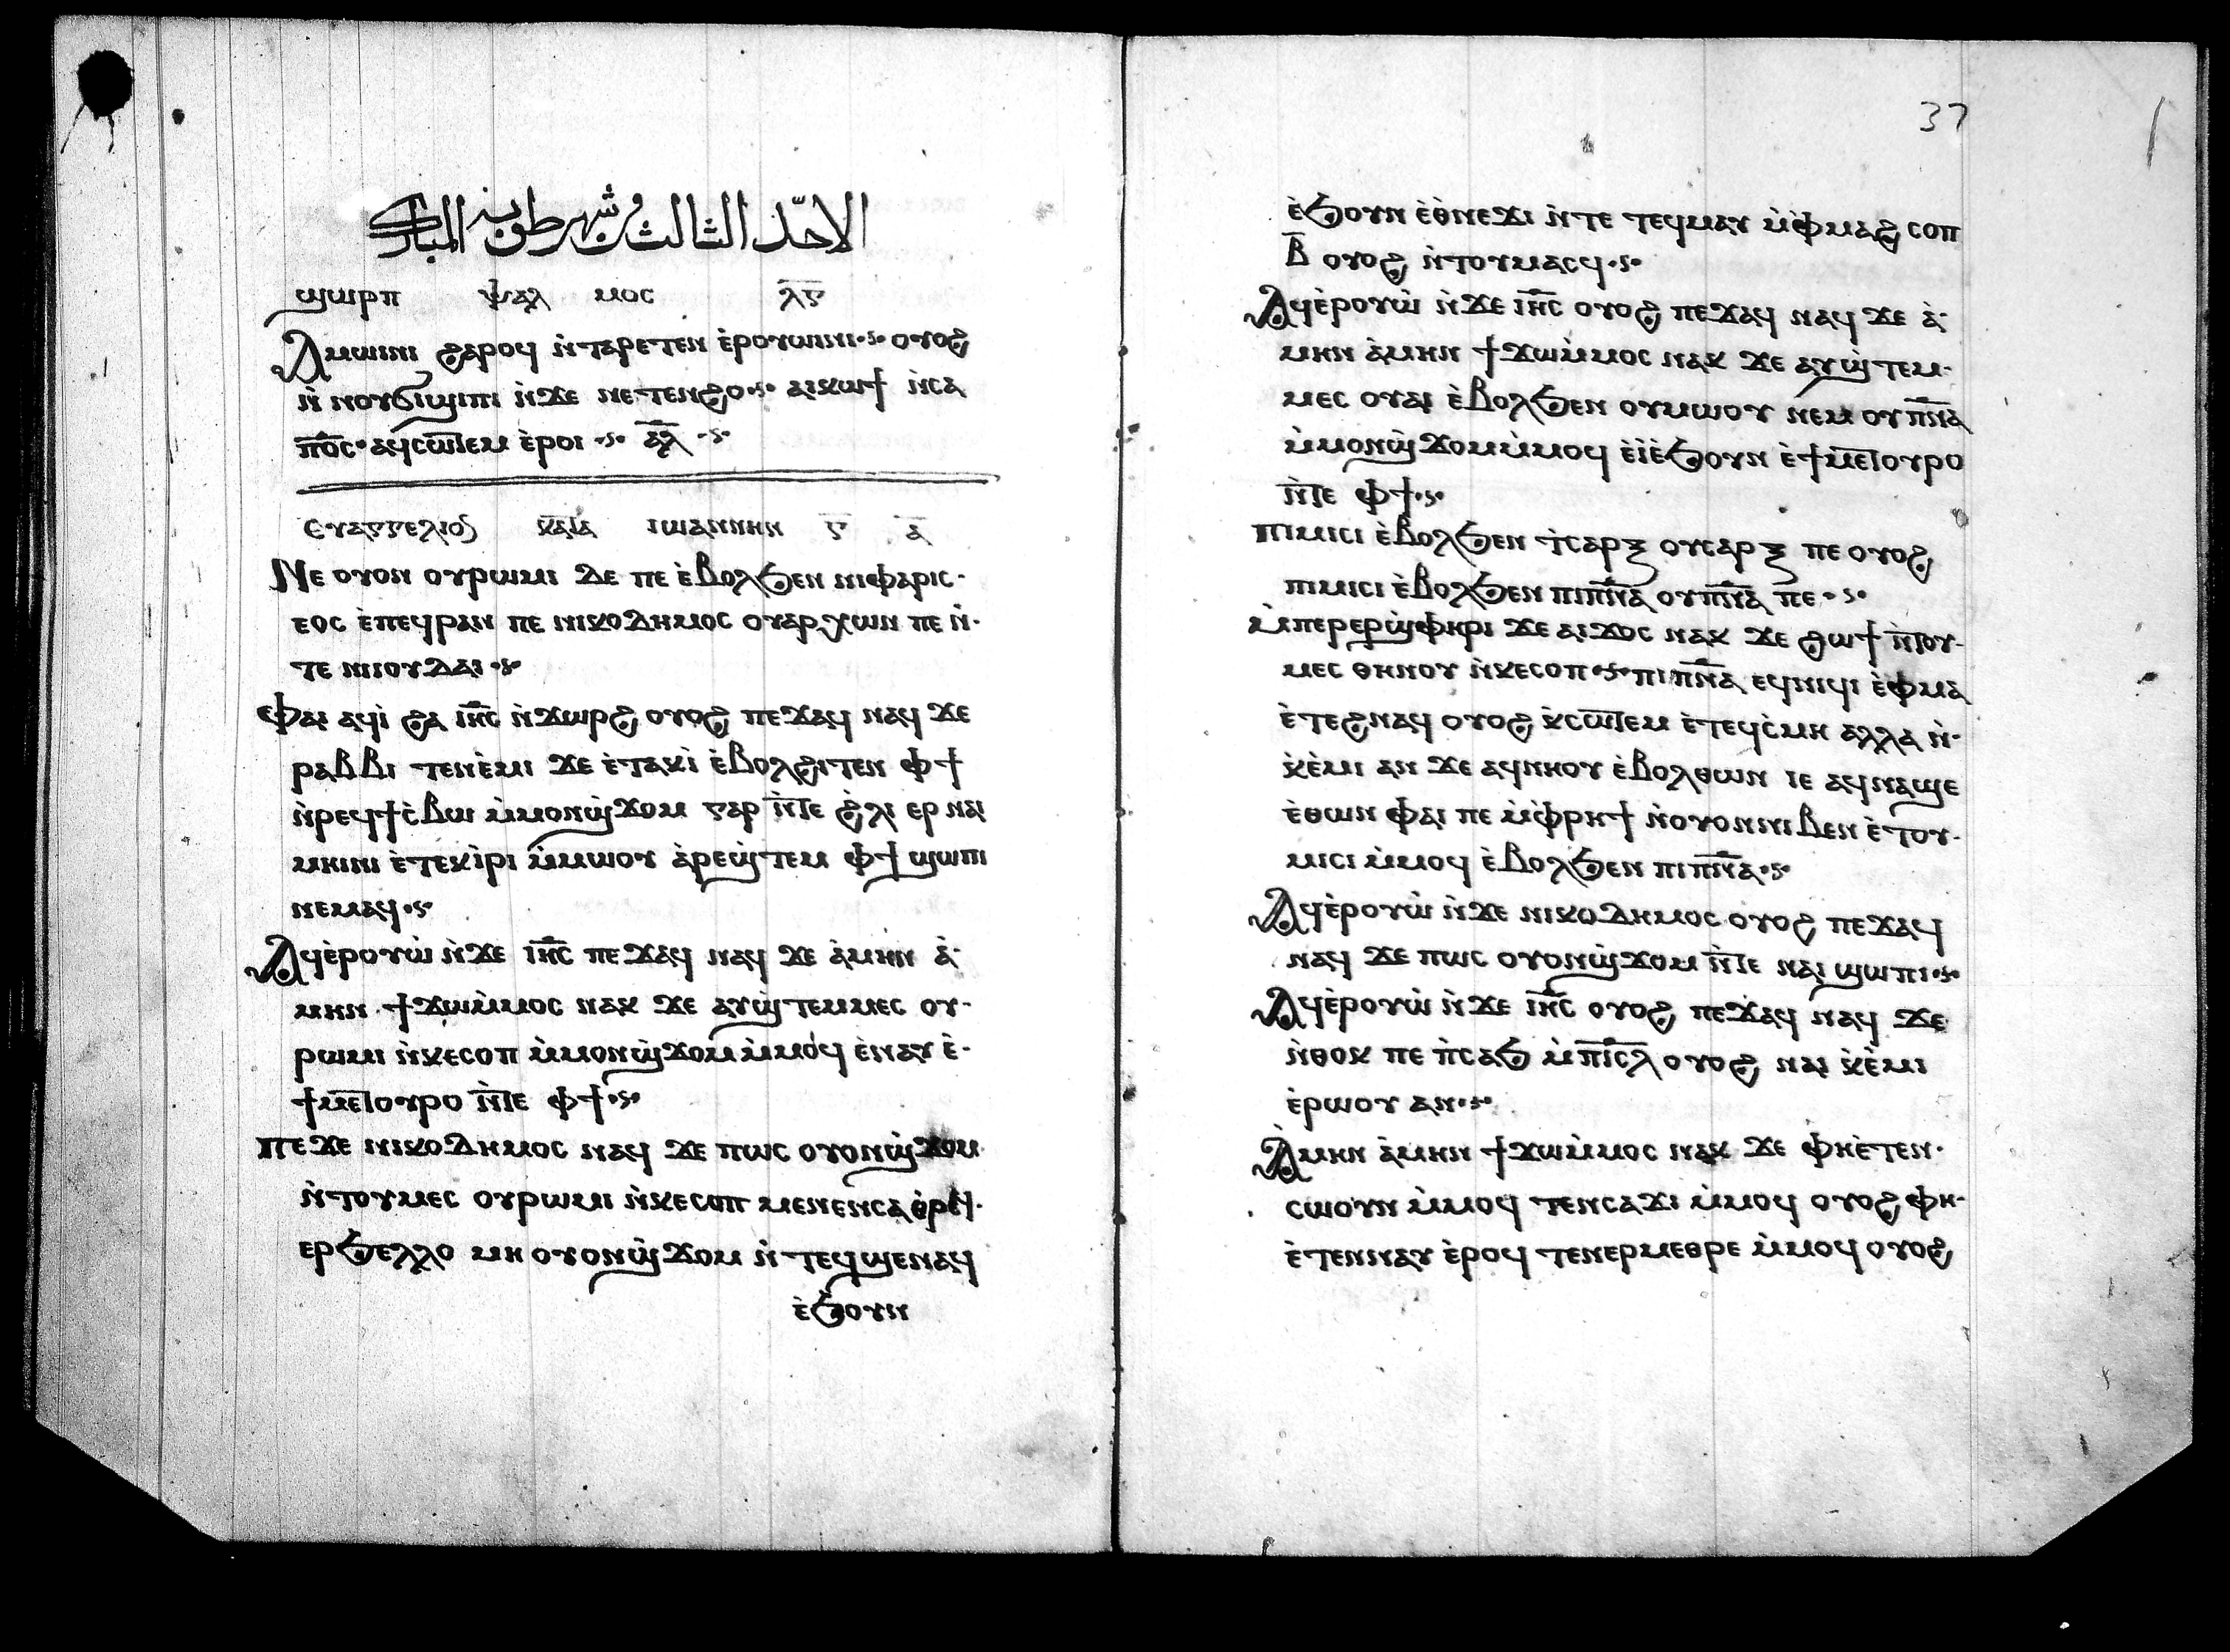 الاحد الثالث من شهر طوبه المبارك
ϣⲱⲣⲡ ⲯⲁⲗ ⲙⲟⲥ ⲗ̅ⲅ̅
Ⲁⲙⲱⲓⲛⲓ ϩⲁⲣⲟϥ ⲛ̀ⲧⲁⲣⲉⲧⲉⲛ ⲉ̀ⲣⲟⲩⲱⲓⲛⲓ·ⲋ· ⲟⲩⲟϩ
ⲛ̀ ⲛⲟⲩϭⲓϣⲓⲡⲓ ⲛ̀ϫⲉ ⲛⲉⲧⲉⲛϩⲟ·ⲋ· ⲁⲓⲕⲱϯ ⲛ̀ⲥⲁ
ⲡ̅ⲟ̅ⲥ̅· ⲁϥⲥⲱ̅ⲧⲉⲙ ⲉ̀ⲣⲟⲓ ·ⲋ· ⲁ̅ⲗ̅ ·ⲋ·
Ⲉⲩⲁⲅⲅⲉⲗⲓⲟⲛ ⲕⲁ̅ⲧⲁ ⲓⲱⲁⲛⲛⲏⲛ ⲅ̅ ⲁ̅
Ⲛⲉ ⲟⲩⲟⲛ ⲟⲩⲣⲱⲙⲓ ⲇⲉ ⲡⲉ ⲉ̀ⲃⲟⲗϧⲉⲛ ⲛⲓⲫⲁⲣⲓⲥ-
ⲉⲟⲥ ⲉ̀ⲡⲉϥⲣⲁⲛ ⲡⲉ ⲛⲓⲕⲟⲇⲏⲙⲟⲥ ⲟⲩⲁⲣⲭⲱⲛ ⲡⲉ ⲛ̀-
ⲧⲉ ⲛⲓⲓⲟⲩⲇⲁⲓ·ⲋ·
Ⲫⲁⲓ ⲁϥⲓ̀ ϩⲁ ⲓ̅ⲏ̅ⲥ̅ ⲛ̀ϫⲱⲣϩ ⲟⲩⲟϩ ⲡⲉϫⲁϥ ⲛⲁϥ ϫⲉ
ⲣⲁⲃⲃⲓ ⲧⲉⲛⲉ̀ⲙⲓ ϫⲉ ⲉ̀ⲧⲁⲕⲓ̀ ⲉ̀ⲃⲟⲗϩⲓⲧⲉⲛ ⲫϯ
ⲛ̀ⲣⲉϥϯⲥ̀ⲃⲱ ⲙ̀ⲙⲟⲛϣ̀ϫⲟⲙ ⲅⲁⲣ ⲛ̀̅ⲧⲉ ϩ̀ⲗⲓ ⲉⲣ ⲛⲁⲓ
ⲙⲏⲓⲛⲓ ⲉ̀ⲧⲉⲕⲓ̀ⲣⲓ ⲙ̀ⲙⲱⲟⲩ ⲁ̀ⲣⲉϣ̀ⲧⲉⲙ ⲫϯ ϣⲱⲡⲓ
ⲛⲉⲙⲁϥ·ⲋ·
Ⲁϥⲉ̀ⲣⲟⲩⲱ̀ ⲛ̀ϫⲉ ⲓ̅ⲏ̅ⲥ̅ ⲡⲉϫⲁϥ ⲛⲁϥ ϫⲉ ⲁ̀ⲙⲏⲛ ⲁ̀-
ⲙⲏⲛ ϯϫⲱⲙ̀ⲙⲟⲥ ⲛⲁⲕ ϫⲉ ⲁⲩϣ̀ⲧⲉⲙⲙⲉⲥ ⲟⲩ-
ⲣⲱⲙⲓ ⲛ̀ⲕⲉⲥⲟⲡ ⲙ̀ⲙⲟⲛϣ̀ϫⲟⲙⲙ̀ⲙⲟϥ ⲉ̀ⲛⲁⲩ ⲉ̀-
ϯⲙⲉ̅ⲧⲟⲩⲣⲟ ⲛ̀̅ⲧⲉ ⲫϯ·ⲋ·
Ⲡⲉϫⲉ ⲛⲓⲕⲟⲇⲏⲙⲟⲥ ⲛⲁϥ ϫⲉ ⲡⲱⲥ ⲟⲩⲟⲛϣ̀ϫⲟⲙ
ⲛ̀ⲧⲟⲩⲙⲉⲥ ⲟⲩⲣⲱⲙⲓ ⲛ̀ⲕⲉⲥⲟⲡ ⲙⲉⲛⲉⲛⲥⲁ ⲑ̀ⲣⲉϥ-
ⲉⲣϧⲉⲗⲗⲟ ⲙⲏ ⲟⲩⲟⲛϣ̀ϫⲟⲙ ⲛ̀ⲧⲉϥϣⲉⲛⲁϥ
ⲉ̀ϧⲟⲩⲛ
37
ⲉ̀ϧⲟⲩⲛ ⲉ̀ⲑ̀ⲛⲉϫⲓ ⲛ̀ⲧⲉ ⲧⲉϥⲙⲁⲩ ⲙ̀ⲫ̀ⲙⲁϩ ⲥⲟⲡ
ⲃ̅ ⲟⲩⲟϩ ⲛ̀ⲧⲟⲩⲙⲁⲥϥ·ⲋ·
Ⲁϥⲉ̀ⲣⲟⲩⲱ̀ ⲛ̀ϫⲉ ⲓ̅ⲏ̅ⲥ̅ ⲟⲩⲟϩ ⲡⲉϫⲁϥ ⲛⲁϥ ϫⲉ ⲁ̀-
ⲙⲏⲛ ⲁ̀ⲙⲏⲛ ϯϫⲱⲙ̀ⲙⲟⲥ ⲛⲁⲕ ϫⲉ ⲁⲩϣ̀ⲧⲉⲙ-
ⲙⲉⲥ ⲟⲩⲁⲓ ⲉ̀ⲃⲟⲗϧⲉⲛ ⲟⲩⲙⲱⲟⲩ ⲛⲉⲙ ⲟⲩⲡ̅ⲛ̅ⲁ̅
ⲙ̀ⲙⲟⲛϣ̀ϫⲟⲙⲙ̀ⲙⲟϥ ⲉ̀ⲓ̀ⲉ̀ϧⲟⲩⲛ ⲉ̀ϯⲙⲉ̅ⲧⲟⲩⲣⲟ
ⲛ̀̅ⲧⲉ ⲫϯ·ⲋ·
Ⲡⲓⲙⲓⲥⲓ ⲉ̀ⲃⲟⲗϧⲉⲛ ϯⲥⲁⲣⲝ ⲟⲩⲥⲁⲣⲝ ⲡⲉ ⲟⲩⲟϩ
ⲡⲓⲙⲓⲥⲓ ⲉ̀ⲃⲟⲗϧⲉⲛ ⲡⲓⲡ̅ⲛ̅ⲁ̅ ⲟⲩⲡ̅ⲛ̅ⲁ̅ ⲡⲉ·ⲋ·
Ⲙ̀ⲡⲉⲣⲉⲣϣ̀ⲫⲏⲣⲓ ϫⲉ ⲁⲓϫⲟⲥ ⲛⲁⲕ ϫⲉ ϩⲱϯ ⲛ̀̅ⲧⲟⲩ-
ⲙⲉⲥ ⲑⲏⲛⲟⲩ ⲛ̀ⲕⲉⲥⲟⲡ·ⲋ· ⲡⲓⲡ̅ⲛ̅ⲁ̅ ⲉϥⲛⲓϥⲓ ⲉ̀ⲫⲙⲁ
ⲉ̀ⲧⲉϩⲛⲁϥ ⲟⲩⲟϩ ⲕ̀ⲥⲱ̅ⲧⲉⲙ ⲉ̀ⲧⲉϥⲥ̀ⲙⲏ ⲁⲗⲗⲁ ⲛ̀-
ⲕ̀ⲉ̀ⲙⲓ ⲁⲛ ϫⲉ ⲁϥⲛⲏⲟⲩ ⲉ̀ⲃⲟⲗⲑⲱⲛ ⲓⲉ ⲁϥⲛⲁϣⲉ
ⲉ̀ⲑⲱⲛ ⲫⲁⲓ ⲡⲉ ⲙ̀ⲫ̀ⲣⲏϯ ⲛ̀ⲟⲩⲟⲛⲛⲓⲃⲉⲛ ⲉ̀ⲧⲟⲩ-
ⲙⲓⲥⲓ ⲙ̀ⲙⲟϥ ⲉ̀ⲃⲟⲗϧⲉⲛ ⲡⲓⲡ̅ⲛ̅ⲁ̅·ⲋ·
Ⲁϥⲉ̀ⲣⲟⲩⲱ̀ ⲛ̀ϫⲉ ⲛⲓⲕⲟⲇⲏⲙⲟⲥ ⲟⲩⲟϩ ⲡⲉϫⲁϥ
ⲛⲁϥ ϫⲉ ⲡⲱⲥ ⲟⲩⲟⲛϣ̀ϫⲟⲙ ⲛ̀̅ⲧⲉ ⲛⲁⲓ ϣⲱⲡⲓ·ⲋ·
Ⲁϥⲉ̀ⲣⲟⲩⲱ̀ ⲛ̀ϫⲉ ⲓ̅ⲏ̅ⲥ̅ ⲟⲩⲟϩ ⲡⲉϫⲁϥ ⲛⲁϥ ϫⲉ
ⲛ̀ⲑⲟⲕ ⲡⲉ ⲡ̀ⲥⲁϧ ⲙ̀ⲡ̅ⲓ̅ⲥ̅ⲗ̅ ⲟⲩⲟϩ ⲛⲁⲓ ⲕ̀ⲉ̀ⲙⲓ
ⲉ̀ⲣⲱⲟⲩ ⲁⲛ·ⲋ·
Ⲁ̀ⲙⲏⲛ ⲁ̀ⲙⲏⲛ ϯϫⲱⲙ̀ⲙⲟⲥ ⲛⲁⲕ ϫⲉ ⲫⲏⲉ̀ⲧⲉⲛ-
ⲥⲱⲟⲩⲛ ⲙ̀ⲙⲟϥ ⲧⲉⲛⲥⲁϫⲓ ⲙ̀ⲙⲟϥ ⲟⲩⲟϩ ⲫⲏ-
ⲉ̀ⲧⲉⲛⲛⲁⲩ ⲉ̀ⲣⲟϥ ⲧⲉⲛⲉⲣⲙⲉⲑⲣⲉ ⲙ̀ⲙⲟϥ ⲟⲩⲟϩ